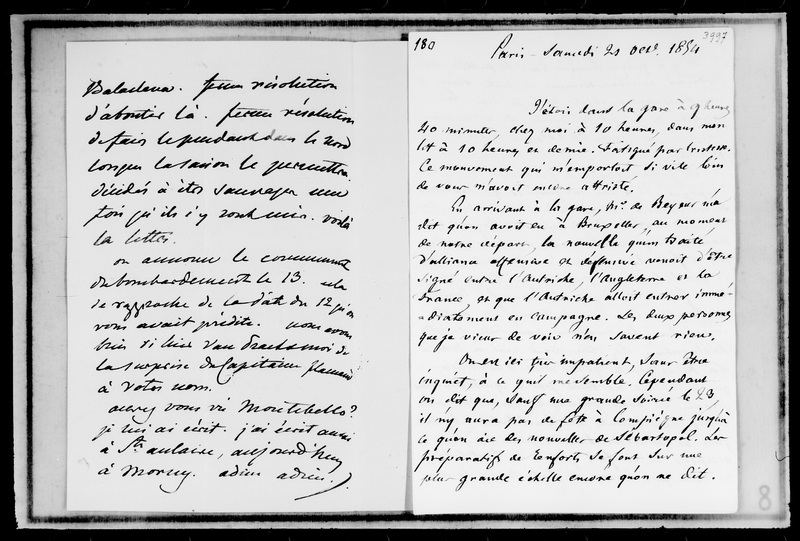 Balaclava. ferme résolution
d'aboutir là. ferme résolution
de faire le pendant dans le nord
lorsque la saison le permettra.
décidés à être sauvages une
fois qu'ils s'y sont mis. voilà
la lettre.
on annonce le commencement
du bombardement le 13. cela
se rapproche de la date du 12 qu'on
vous avait prédite. nous avons
bien ri hier Van Straten et moi de
la surprise du Capitaine flamand
à votre nom.
avez vous vu Montebello?
je lui ai écrit. j'ai écrit aussi
à Ste aulaire, aujourd'huy
à Morny. adieu adieu.
180
3997
Paris - Samedi 21 octo. 1854
J'étois dans la gare à 9 heures
40 minutes, chez moi à 10 heures, dans mon
lit à 10 heures et demie. Fatigué par tristesse.
Ce mouvement qui m'emportoit si vite loin
de vous m'avoit encore attristé.
En arrivant à la gare, Mr. de Beyer m'a
dit qu'on avoit eu à Bruxelles, au moment
de notre départ, la nouvelle qu'un traité
d'alliance offensive et défensive venoit d'être
signé entre l'Autriche, l'Angleterre et la
France, et que l'Autriche alloit entrer immé-
diatement en campagne. Les deux personnes
que je viens de voir n'en savent rien.
On est ici fier impatient, sans être
inquiet, à ce qu'il me semble. Cependant
on dit que, sauf une grande soirée le 23,
il n'y aura pas de fête à Compiègne jusqu'à
ce qu'on aie des nouvelles de Sébastopol. Les
préparatifs de renforts se font sur une
plus grande échelle encore qu'on ne dit.
8